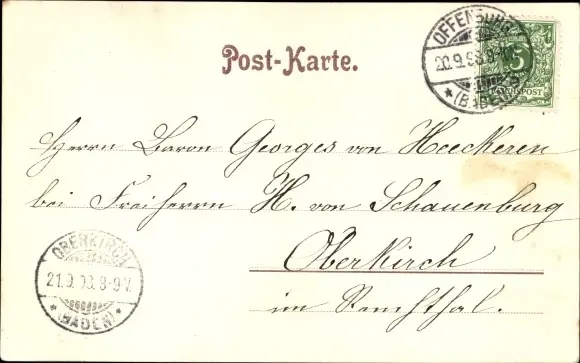 Post-Karte.
OFFENBURG
20.9.98.8-9
(BADEN)
5
REICHSPOST
Herrn Baron Georges von Heeckeren
bei Freiherrn H. von Schauenburg
Oberkirch
im Renchthal.
OBERKIRCH
21.9.98.8-9V.
(BADEN)